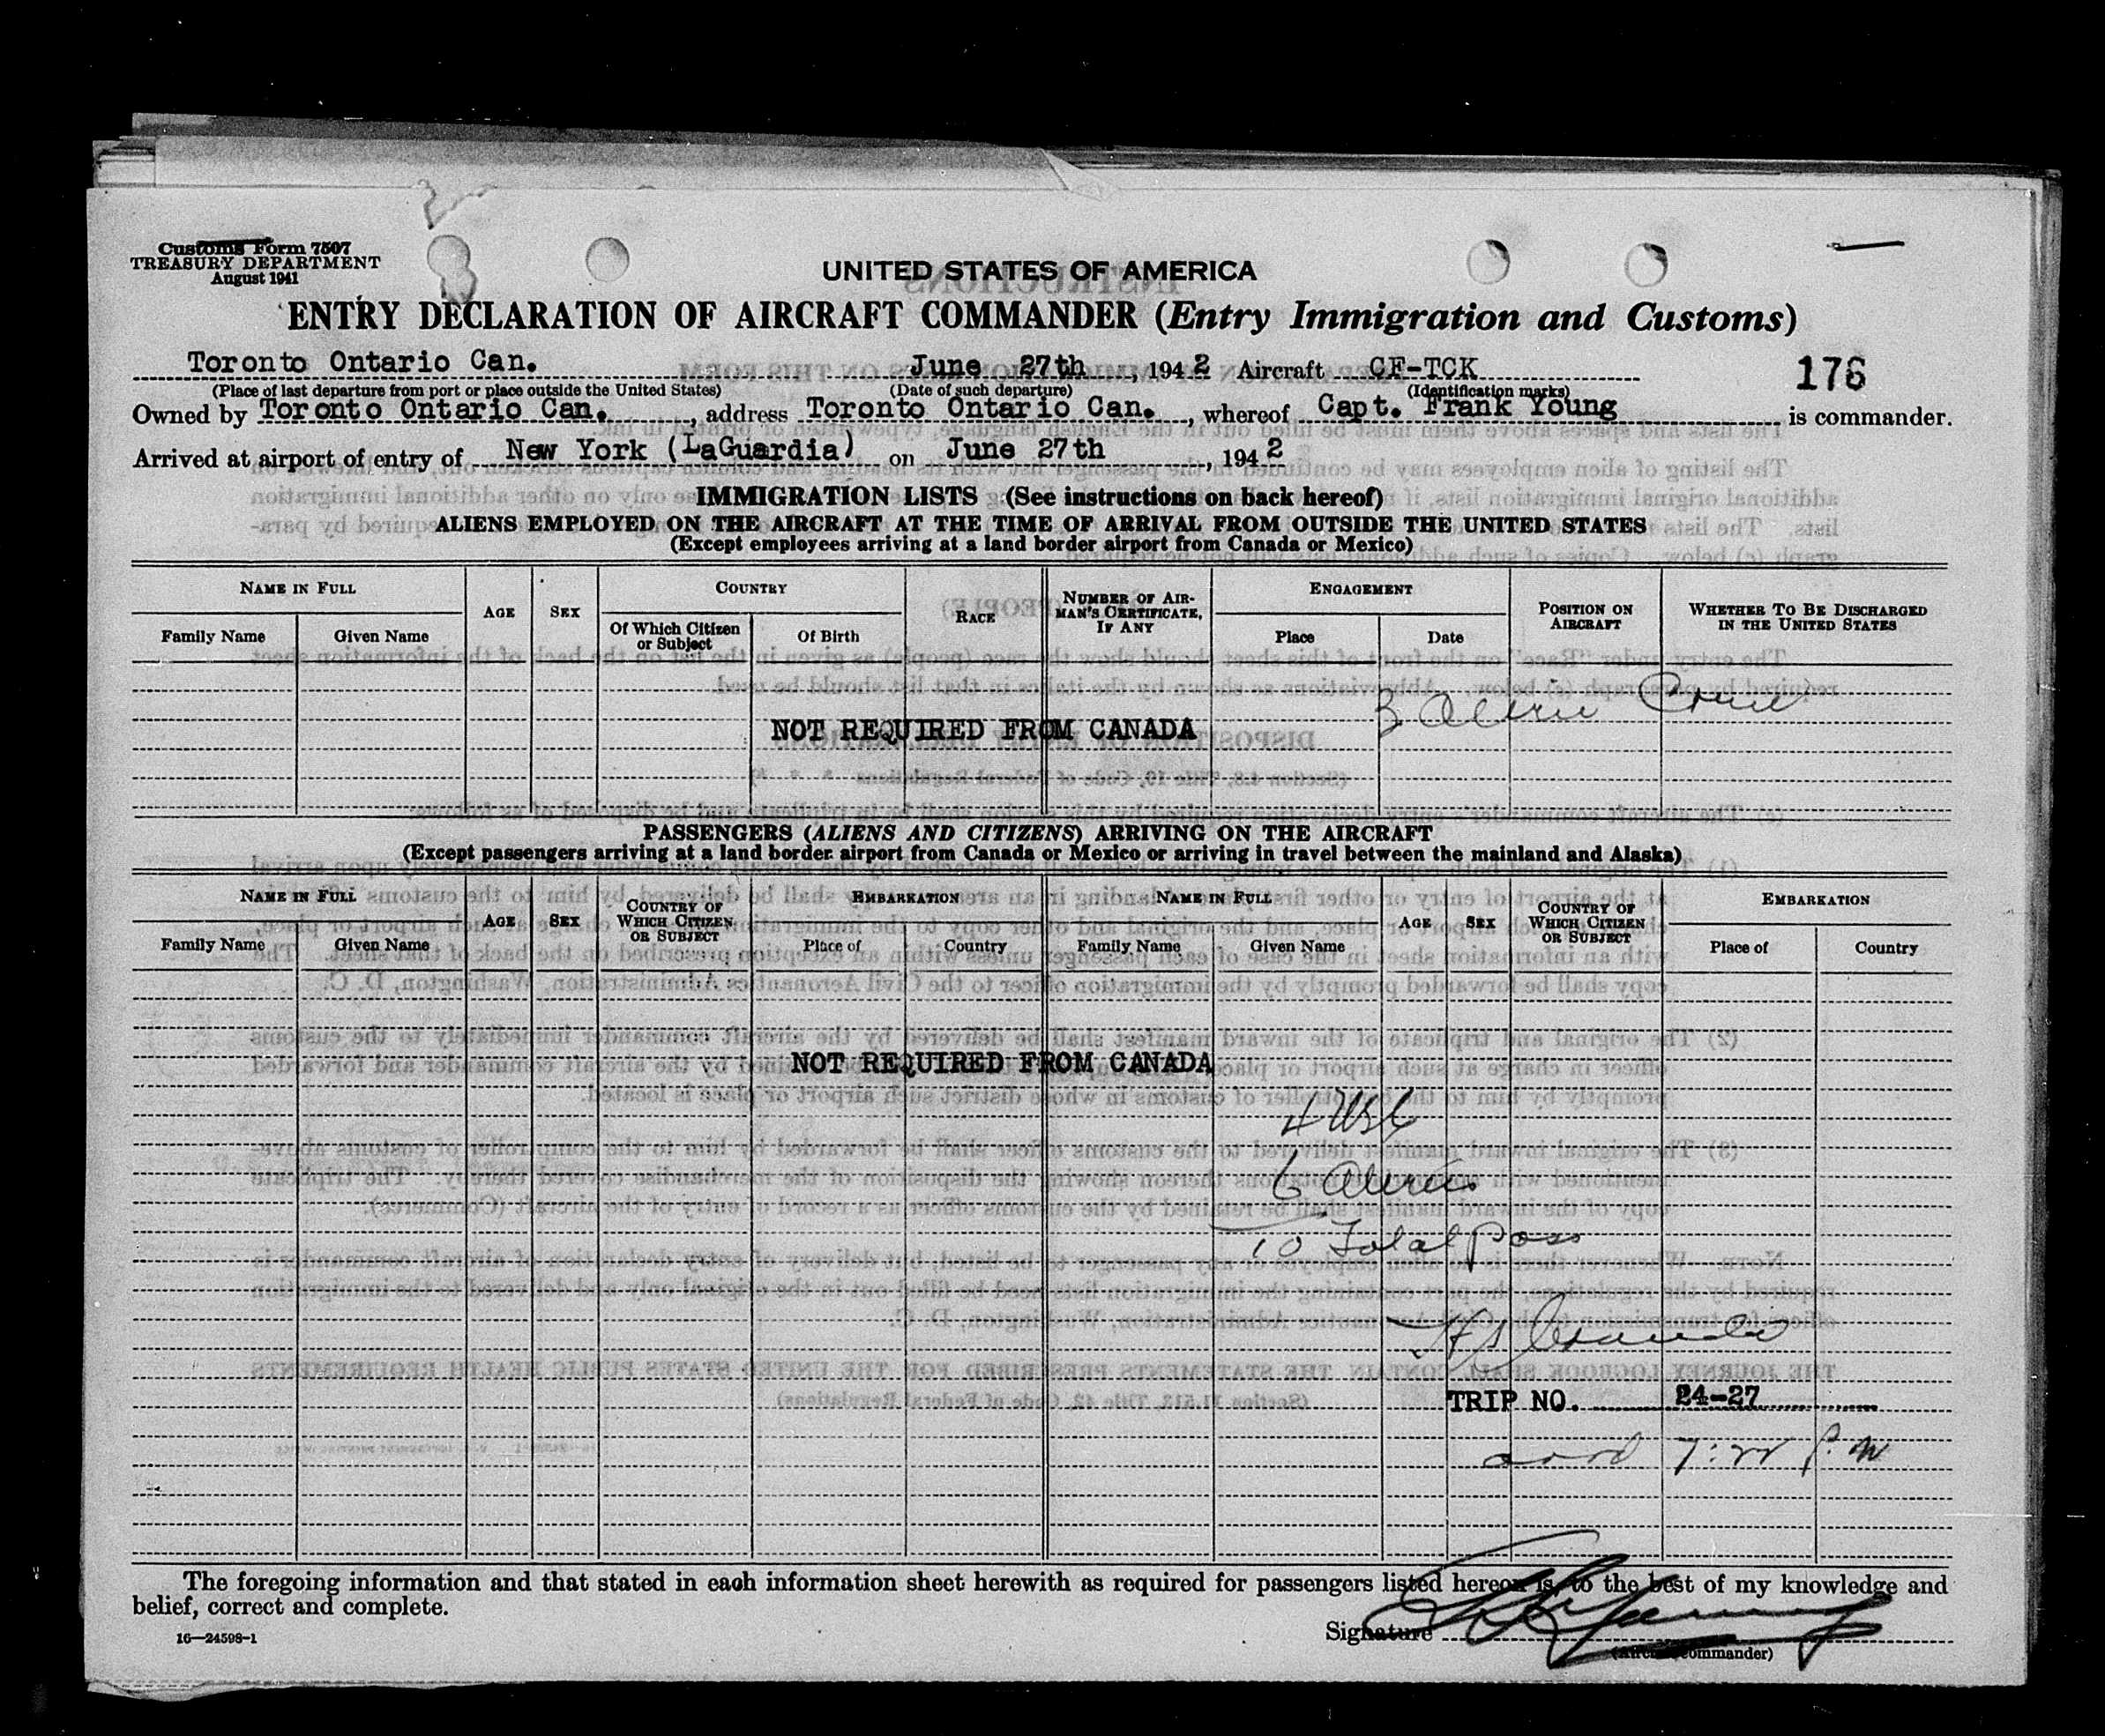 Customs Form 7507
TREASURY DEPARTMENT
August 1941
UNITED STATES OF AMERICA
ENTRY DECLARATION OF AIRCRAFT COMMANDER (Entry Immigration and Customs)
Toronto Ontario Can. June 27th, 1942 Aircraft CF-TCK 176
(Place of last departure from port or place outside the United States) (Date of such departure) (Identification marks)
Owned by Toronto Ontario Can., address Toronto Ontario Can., whereof Capt. Frank Young is commander.
Arrived at airport of entry of New York (LaGuardia) on June 27th, 1942
IMMIGRATION LISTS (See instructions on back hereof)
ALIENS EMPLOYED ON THE AIRCRAFT AT THE TIME OF ARRIVAL FROM OUTSIDE THE UNITED STATES
(Except employees arriving at a land border airport from Canada or Mexico)
NAME IN FULL AGE SEX COUNTRY RACE NUMBER OF AIRMAN'S CERTIFICATE, IF ANY ENGAGEMENT POSITION ON AIRCRAFT WHETHER TO BE DISCHARGED IN THE UNITED STATES
Family Name Given Name Of Which Citizen or Subject Of Birth Place Date
3 Alien Crew
NOT REQUIRED FROM CANADA
PASSENGERS (ALIENS AND CITIZENS) ARRIVING ON THE AIRCRAFT
(Except passengers arriving at a land border airport from Canada or Mexico or arriving in travel between the mainland and Alaska)
NAME IN FULL AGE SEX COUNTRY OF WHICH CITIZEN OR SUBJECT EMBARKATION NAME IN FULL AGE SEX COUNTRY OF WHICH CITIZEN OR SUBJECT EMBARKATION
Family Name Given Name Place of Country Family Name Given Name Place of Country
NOT REQUIRED FROM CANADA
4 USC
6 Aliens
10 Total Pass
TRIP NO. 24-27
7:22 P.M
The foregoing information and that stated in each information sheet herewith as required for passengers listed hereon is, to the best of my knowledge and
belief, correct and complete.
Signature
(Aircraft commander)
16—24598-1